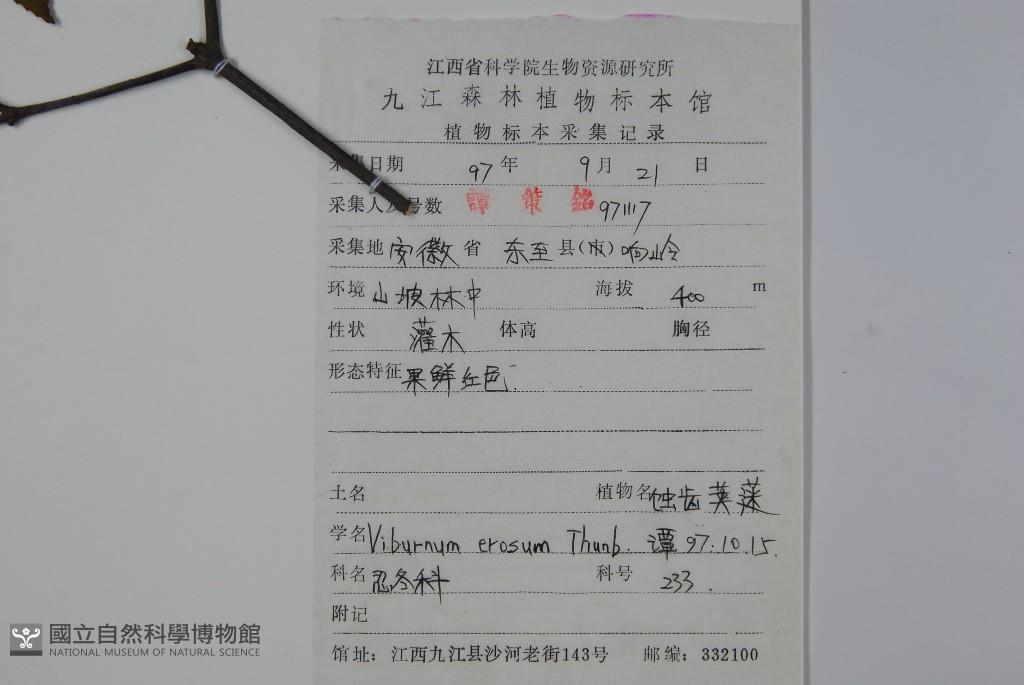 江西省科学院生物资源研究所
九江森林植物标本馆
植物标本采集记录
采集日期 97年 9月 21 日
采集人及号数 譚策銘 971117
采集地 安徽 省 东至 县(市) 响岭
环境 山坡林中 海拔 400 m
性状 灌木 体高 胸径
形态特征 果鲜红色.
土名 植物名 蚀齿荚蒾
学名 Viburnum erosum Thunb. 谭 97.10.15.
科名 忍冬科 科号 233.
附记
馆址: 江西九江县沙河老街143号 邮编: 332100
國立自然科學博物館
NATIONAL MUSEUM OF NATURAL SCIENCE